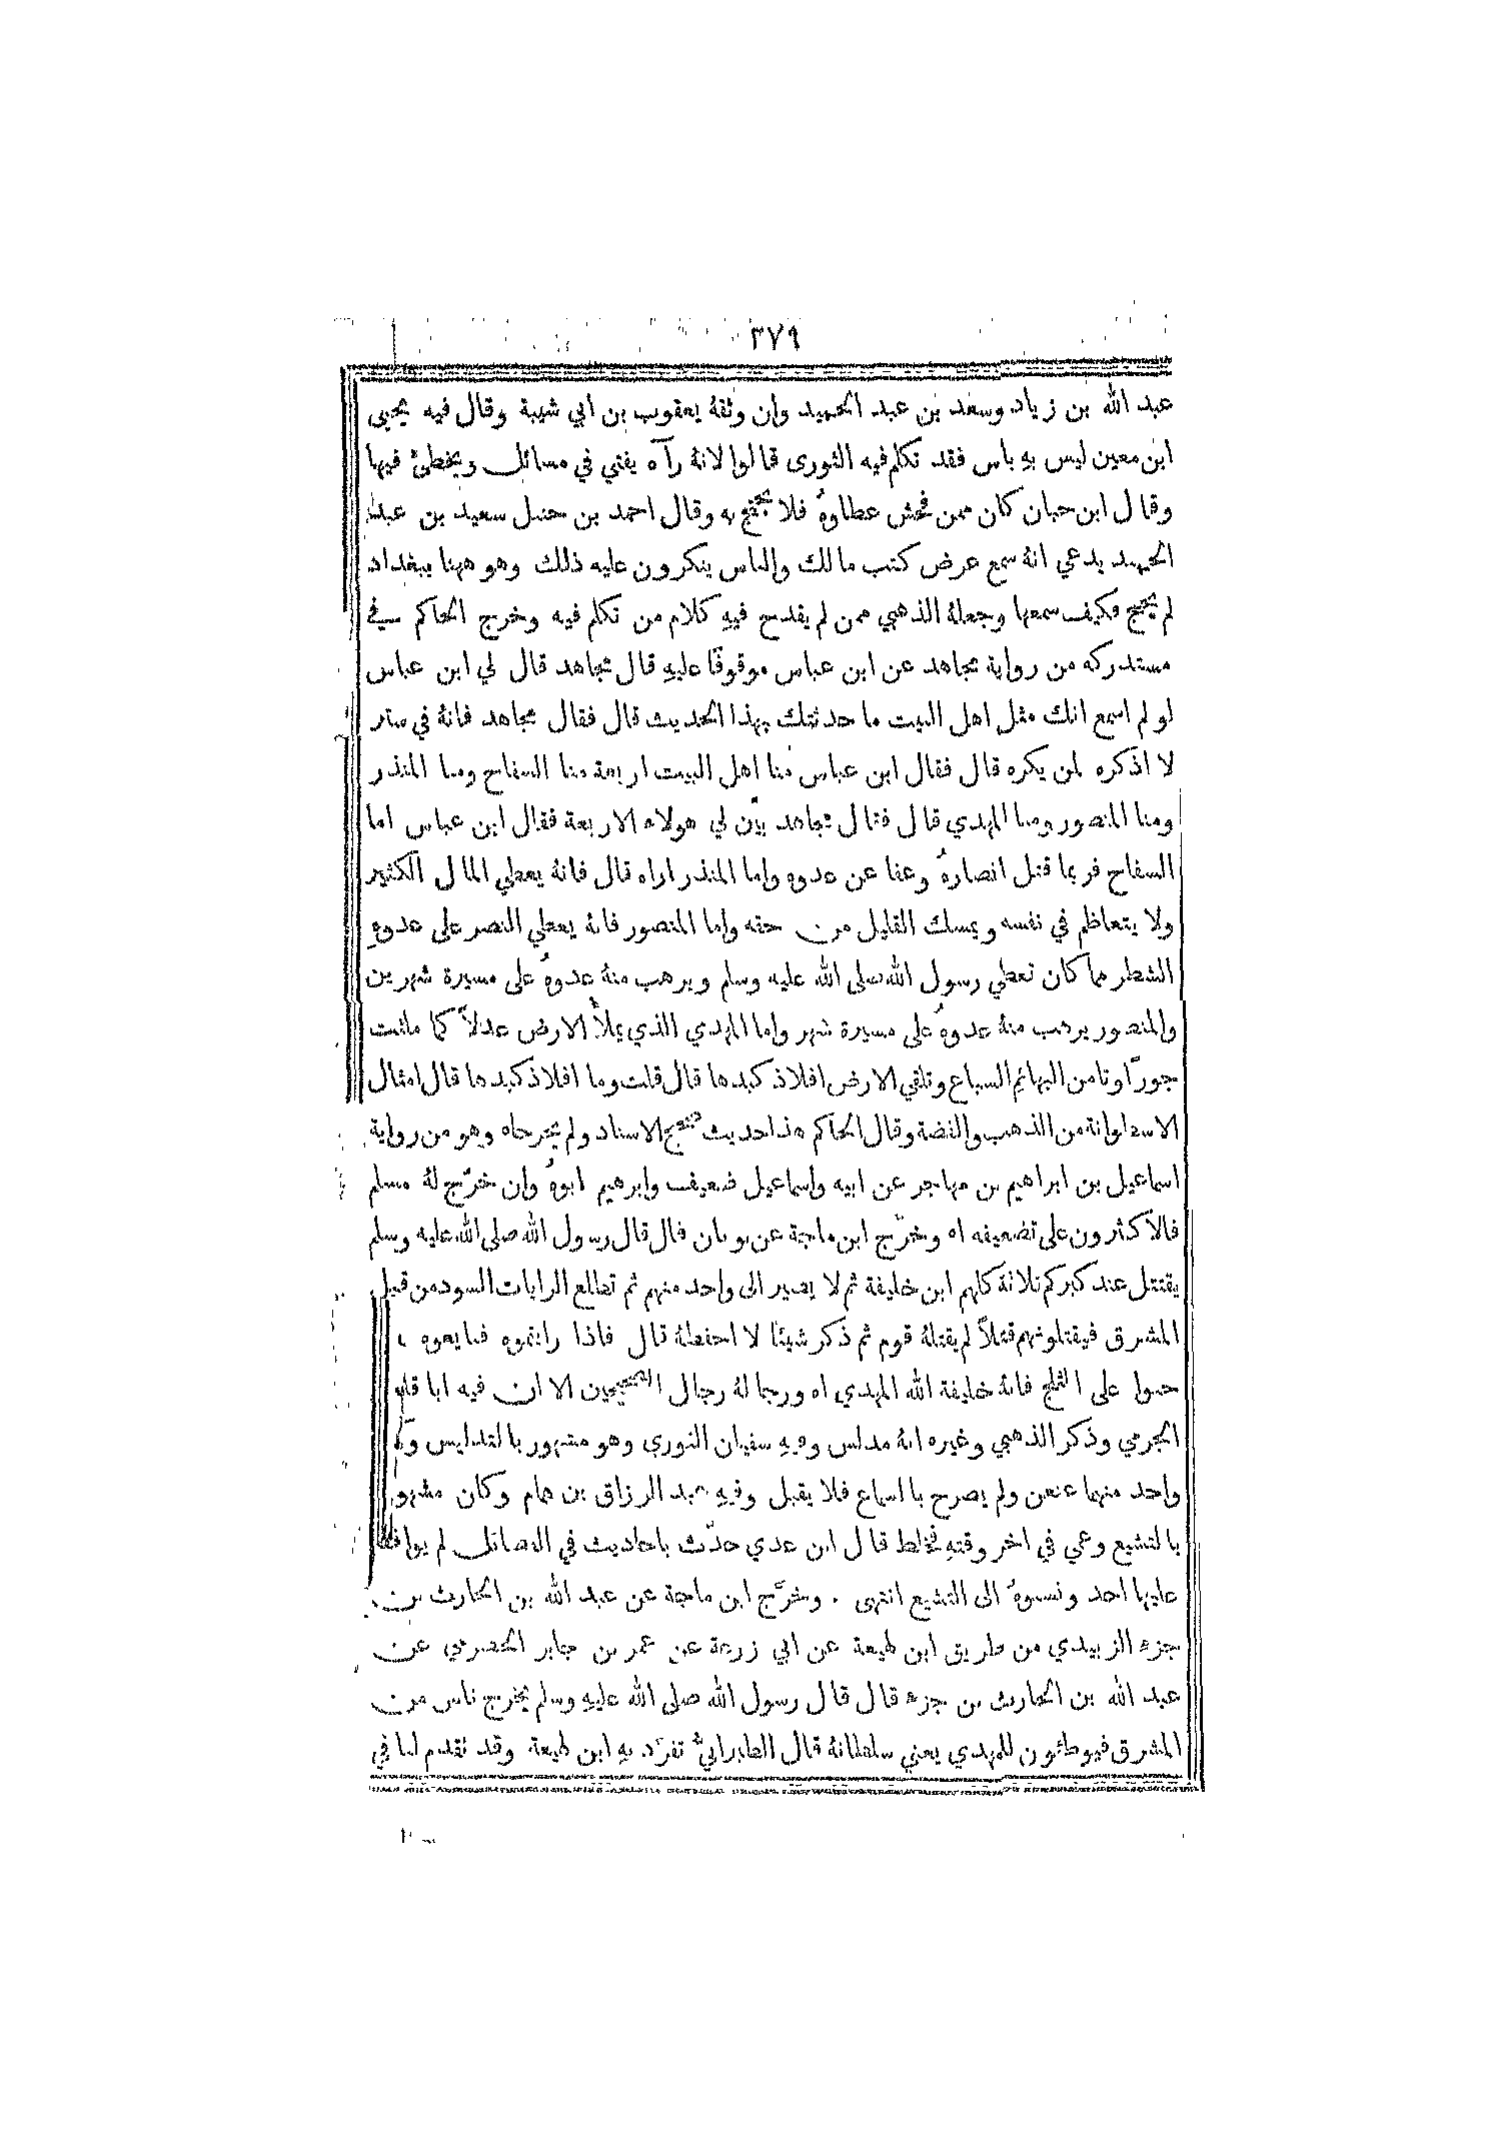 ٣٧٩
عبد الله بن زياد وسعد بن عبد الحميد وان وثقهُ يعقوب بن ابي شيبة وقال فيه يحيى
ابن معين ليس به باس فقد تكلم فيه الثورى قالوا لانهُ رآه يفتي في مسائل ويخطئ فيها
وقال ابن حبان كان ممن فحش عطاوهُ فلا يحتج به وقال احمد بن حنبل سعيد بن عبد
الحميد يدعي انهُ سمع عرض كتب مالك والناس ينكرون عليه ذلك وهو ههنا ببغداد
لم يحج فكيف سمعها وجعلهُ الذهبي ممن لم يقدح فيهِ كلام من تكلم فيه وخرج الحاكم في
مستدركه من رواية مجاهد عن ابن عباس موقوفًا عليهِ قال مجاهد قال لي ابن عباس
لو لم اسمع انك مثل اهل البيت ما حدثتك بهذا الحديث قال فقال مجاهد فانهُ في ستر
لا اذكره لمن يكره قال فقال ابن عباس منا اهل البيت اربعة منا السفاح ومنا المنذر
ومنا المنصور ومنا المهدي قال فقال مجاهد بيّن لي هولاء الاربعة فقال ابن عباس اما
السفاح فربما قتل انصارهُ وعفا عن عدوه واما المنذر اراه قال فانهُ يعطي المال الكثير
ولا يتعاظم في نفسه ويمسك القليل من حقه واما المنصور فانهُ يعطي النصر على عدوهِ
الشطر مما كان يعطي رسول الله صلى الله عليه وسلم ويرهب منهُ عدوهُ على مسيرة شهرين
والمنصور يرهب منهُ عدوهُ على مسيرة شهر واما المهدي الذي يملأُ الارض عدلاً كما ملئت
جورًا وتامن البهائم السباع وتلقي الارض افلاذ كبدها قال قلت وما افلاذ كبدها قال امثال
الاسطوانة من الذهب والفضة وقال الحاكم هذا حديث صحيح الاسناد ولم يخرجاه وهو من رواية
اسماعيل بن ابراهيم بن مهاجر عن ابيه واسماعيل ضعيف وابرهيم ابوهُ وان خرّج لهُ مسلم
فالاكثرون على تضعيفه اه وخرّج ابن ماجة عن ثوبان قال قال رسول الله صلى الله عليه وسلم
يقتتل عند كبركم ثلاثة كلهم ابن خليفة ثم لا يصير الى واحد منهم ثم تطلع الرايات السود من قبل
المشرق فيقتلونهم قتلاً لم يقتلهُ قوم ثم ذكر شيئًا لا احفظهُ قال فاذا رايتموه فبايعوه
حبوا على الثلج فانهُ خليفة الله المهدي اه ورجالهُ رجال الصحيحين الا ان فيه ابا
الجرمي وذكر الذهبي وغيره انهُ مدلس وفيهِ سفيان الثوري وهو مشهور بالتدليس
واحد منهما عنعن ولم يصرح بالسماع فلا يقبل وفيهِ عبد الرزاق بن همام وكان
بالتشيع وعمي في اخر وقتهِ فخلط قال ابن عدي حدّث باحاديث في الفضائل لم يوافقهُ
عليها احد ونسبوهُ الى التشيع انتهى . وخرّج ابن ماجة عن عبد الله بن الحارث بن
جزء الزبيدي من طريق ابن لهيعة عن ابي زرعة عن عمر بن جابر الحضرمي عن
عبد الله بن الحارث بن جزء قال قال رسول الله صلى الله عليهِ وسلم يخرج ناس من
المشرق فيوطئون للمهدي يعني سلطانهُ قال الطبرانيُّ تفرّد بهِ ابن لهيعة وقد تقدم لنا في